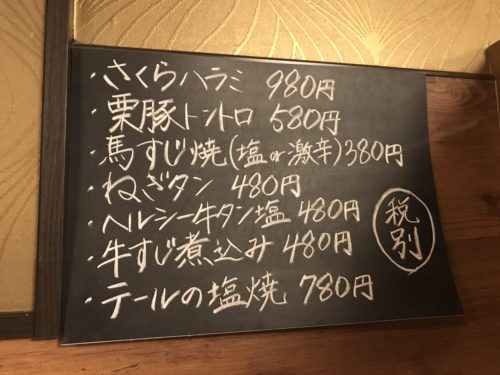 ・さくらハラミ 980円
・栗豚トントロ 580円
・馬すじ焼(塩or激辛)380円
・ねぎタン 480円
・ヘルシー牛タン塩 480円
・牛すじ煮込み 480円
・テールの塩焼 780円
税別